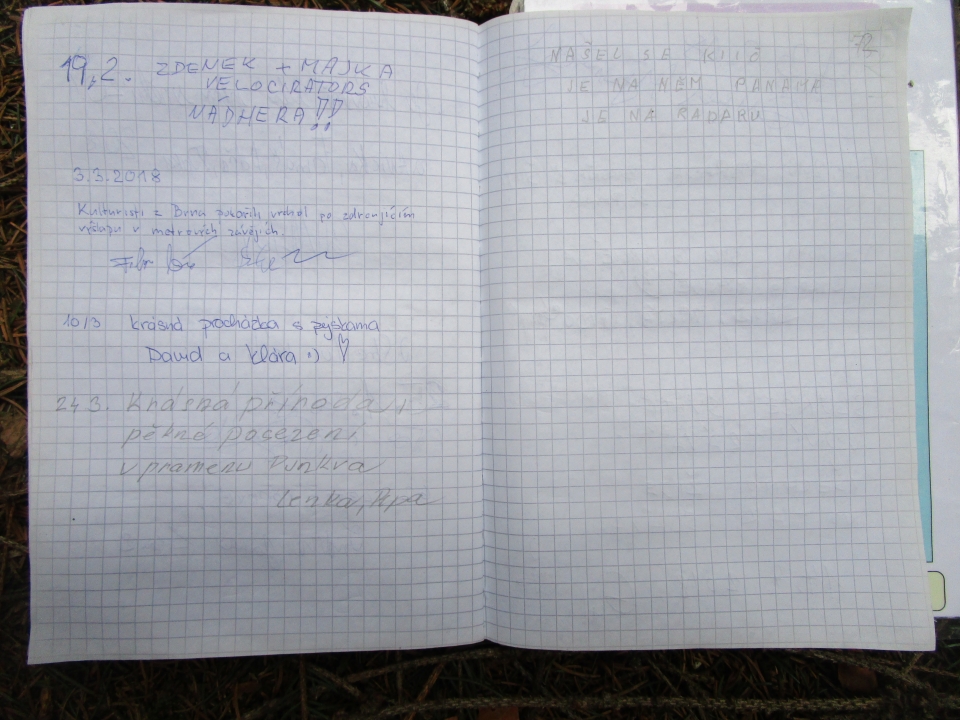 19.2. ZDENEK + MAJKA
VELOCIRATORS
NÁDHERA!!
3.3.2018
Kulturisti z Brna pokořili vrchol po zdrcujícím
výšlapu v metrových závějích.
10/3 krásná procházka s pejskama
David a Klára :)
24.3. Krásná příroda,
pěkné posezení
v pramenu Punkva
Lenka, Pepa
72
NAŠEL SE KLÍČ
JE NA NĚM PANAMA
JE NA RADARU